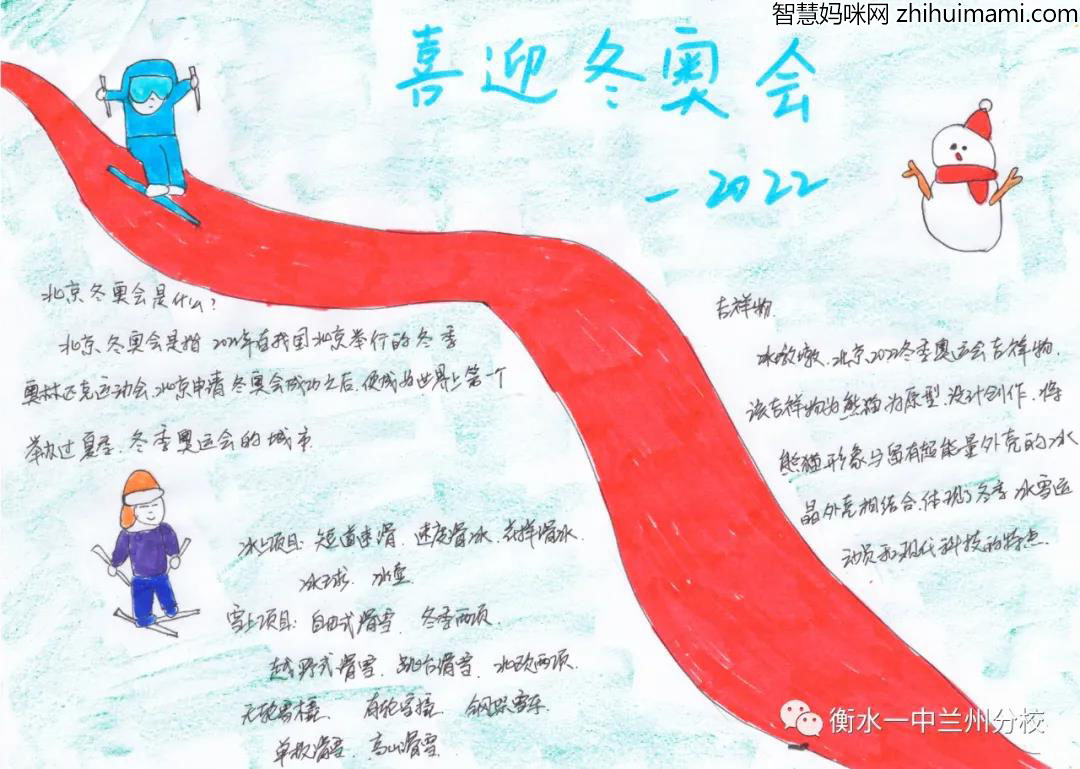 智慧妈咪网 zhihuimami.com
喜迎冬奥会
-2022
北京冬奥会是什么?
北京冬奥会是指2022年在我国北京举行的冬季
奥林匹克运动会.北京申请冬奥会成功之后,便成为世界上第一个
举办过夏季、冬季奥运会的城市
冰上项目: 短道速滑、速度滑冰、花样滑冰、
冰球、冰壶
雪上项目: 自由式滑雪、冬季两项
越野式滑雪、跳台滑雪、北欧两项、
无舵雪橇、有舵雪橇、钢架雪车
单板滑雪、高山滑雪
吉祥物
冰墩墩,北京2022冬季奥运会吉祥物,
该吉祥物为熊猫为原型设计创作,将
熊猫形象与富有超能量外壳的冰
晶外壳相结合,体现了冬季冰雪运
动员和现代科技的特点.
衡水一中兰州分校